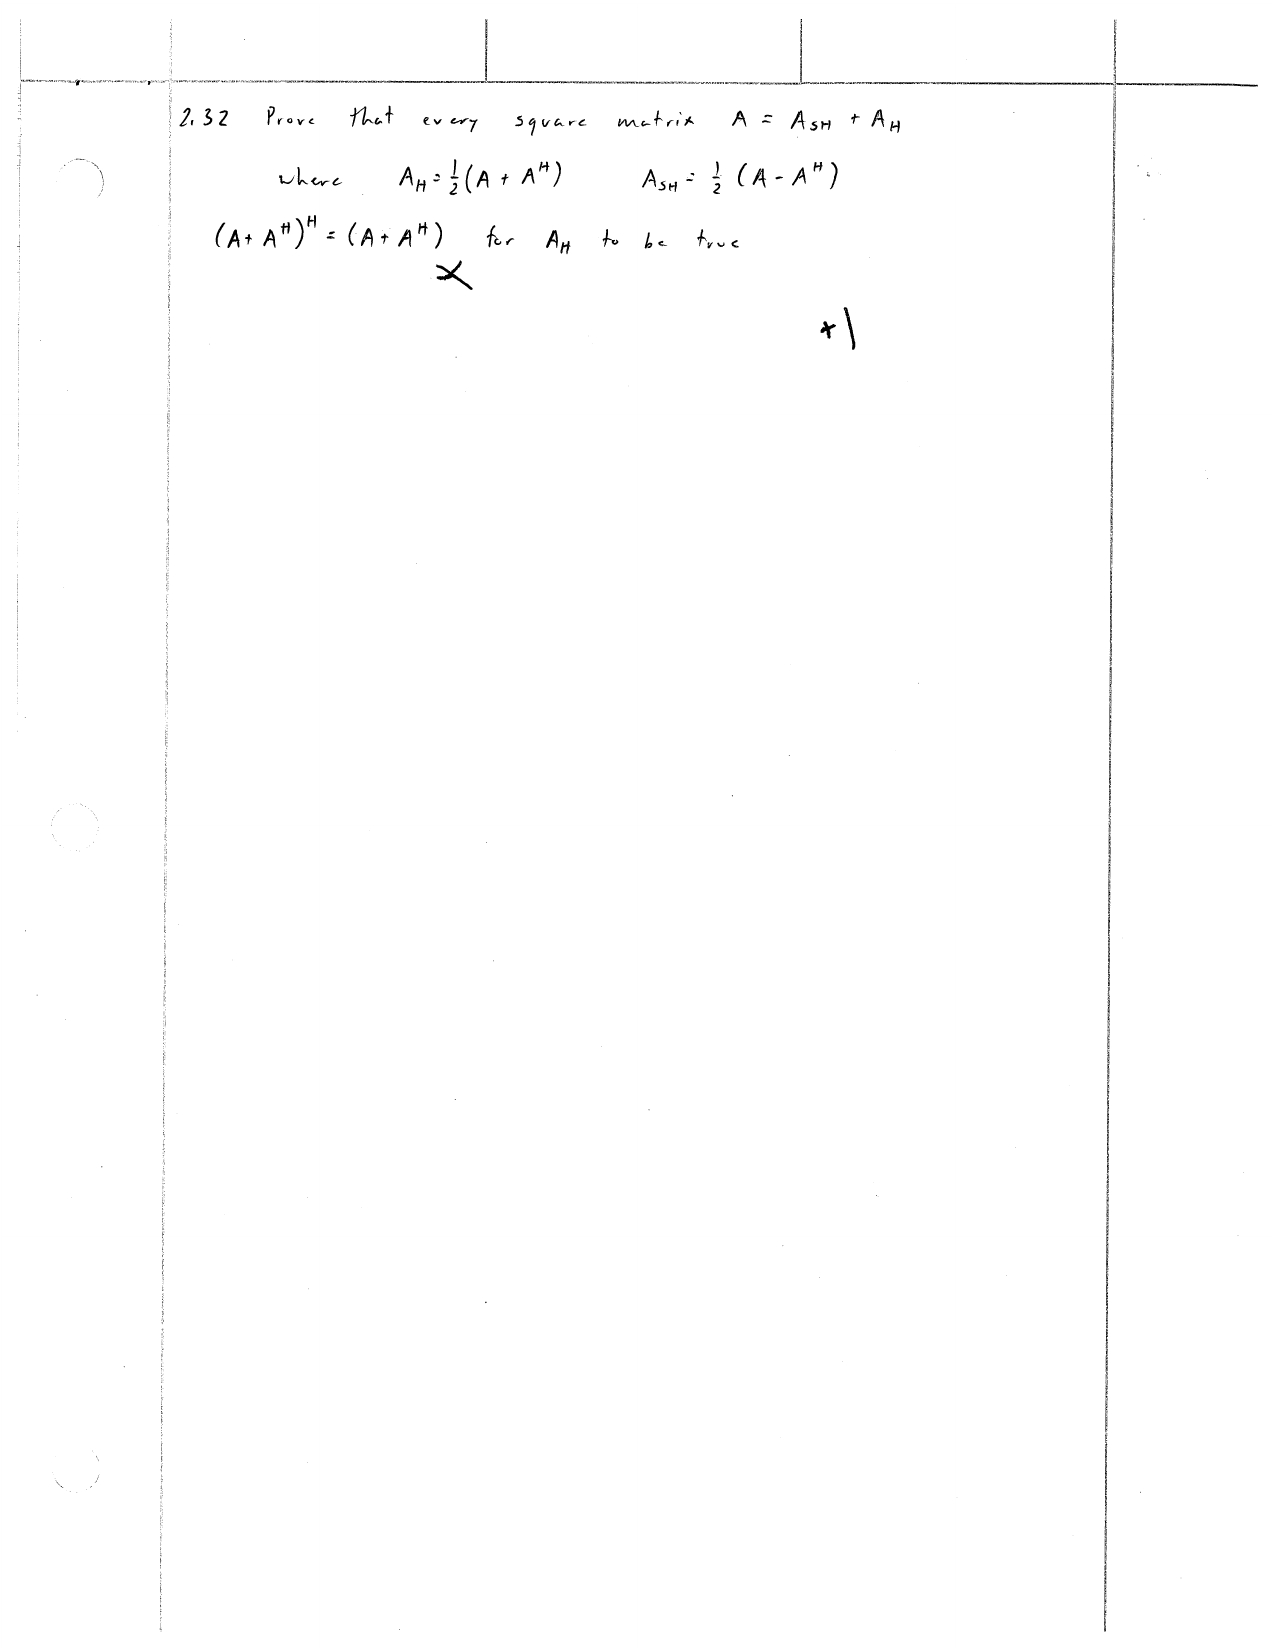 2.32 Prove that every square matrix A = A_SH + A_H
where A_H = 1/2 (A + A^H) A_SH = 1/2 (A - A^H)
(A + A^H)^H = (A + A^H) for A_H to be true
X
+1